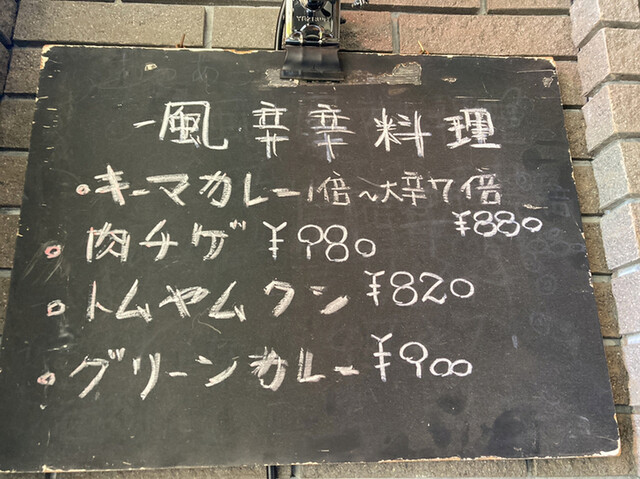 一風辛辛料理
・キーマカレー1倍~大辛7倍
¥880
・肉チゲ ¥980
・トムヤムクン ¥820
・グリーンカレー ¥900